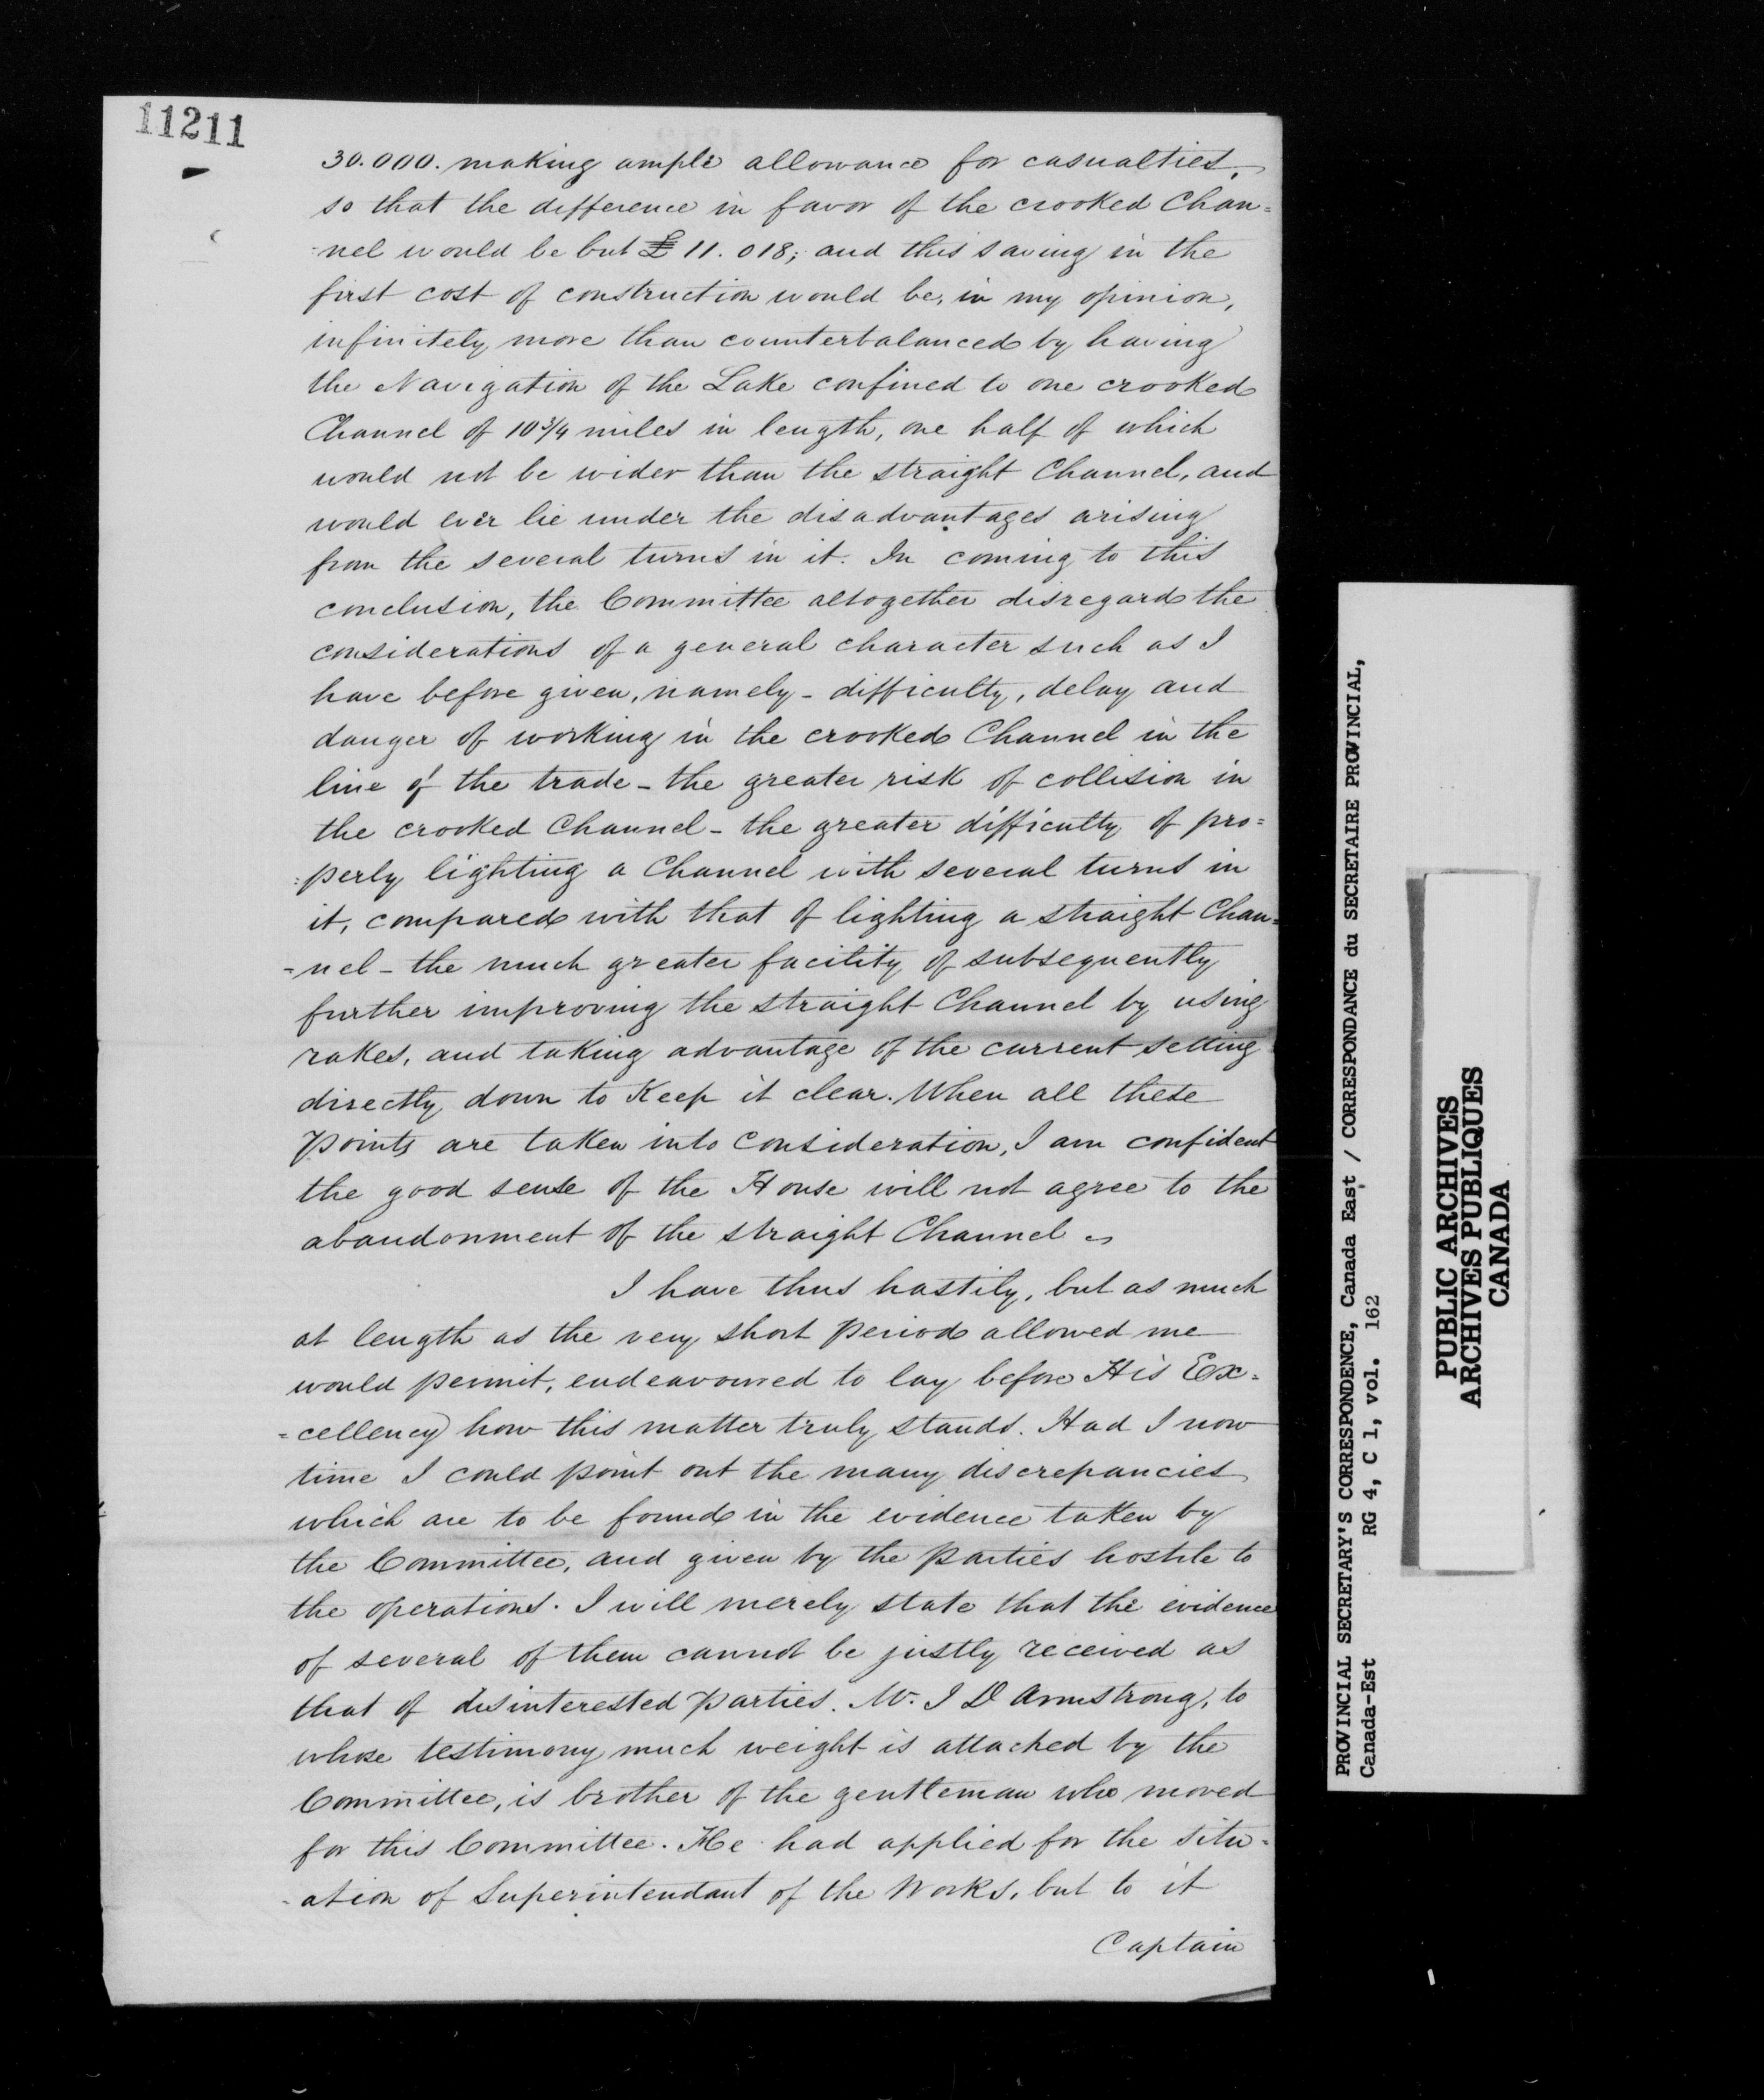 11211
30.000. making ample allowance for casualties,
so that the difference in favor of the crooked Chan=
=nel would be but £ 11.018; and this saving in the
first cost of construction would be, in my opinion,
infinitely more than counterbalanced by having
the Navigation of the Lake confined to one crooked
Channel of 10 3/4 miles in length, one half of which
would not be wider than the straight Channel, and
would ever lie under the disadvantages arising
from the several turns in it. In coming to this
conclusion, the Committee altogether disregard the
considerations of a general character such as I
have before given, namely - difficulty, delay and
danger of working in the crooked Channel in the
line of the trade - the greater risk of collision in
the crooked Channel - the greater difficulty of pro=
=perly lighting a Channel with several turns in
it, compared with that of lighting a straight Chan=
=nel - the much greater facility of subsequently
further improving the straight Channel by using
rakes, and taking advantage of the current setting
directly down to Keep it clear. When all these
points are taken into consideration, I am confident
the good sense of the House will not agree to the
abandonment of the straight Channel
I have thus hastily, but as much
at length as the very short period allowed me
would permit, endeavoured to lay before His Ex=
=cellency how this matter truly stands. Had I now
time I could point out the many discrepancies
which are to be found in the evidence taken by
the Committee, and given by the parties hostile to
the operations. I will merely state that the evidence
of several of them cannot be justly received as
that of disinterested parties. Mr. J D Armstrong, to
whose testimony much weight is attached by the
Committee, is brother of the gentleman who moved
for this Committee. He had applied for the situ=
=ation of Superintendant of the Works, but to it
Captain
PROVINCIAL SECRETARY'S CORRESPONDENCE, Canada East / CORRESPONDANCE du SECRETAIRE PROVINCIAL,
Canada-Est RG 4, C 1, vol. 162
PUBLIC ARCHIVES
ARCHIVES PUBLIQUES
CANADA